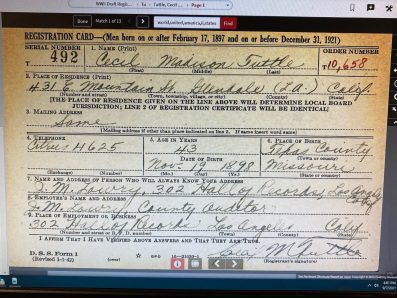 WWII Draft Regist... Tu Tuttle, Cecil ... Page 1
Done Match 1 of 13 world,united,america,states Find
REGISTRATION CARD—(Men born on or after February 17, 1897 and on or before December 31, 1921)
SERIAL NUMBER 1. NAME (Print) ORDER NUMBER
T 492 Cecil Madison Tuttle T10,658
(First) (Middle) (Last)
2. PLACE OF RESIDENCE (Print)
431 E. Mountain St. Glendale (L.A.) Calif.
(Number and street) (Town, township, village, or city) (County) (State)
[THE PLACE OF RESIDENCE GIVEN ON THE LINE ABOVE WILL DETERMINE LOCAL BOARD
JURISDICTION; LINE 2 OF REGISTRATION CERTIFICATE WILL BE IDENTICAL]
3. MAILING ADDRESS
Same
[Mailing address if other than place indicated on line 2. If same insert word same]
4. TELEPHONE 5. AGE IN YEARS 6. PLACE OF BIRTH
Citrus 4625 43 Texas County
DATE OF BIRTH (Town or county)
Nov. 19 1898 Missouri
(Exchange) (Number) (Mo.) (Day) (Yr.) (State or country)
7. NAME AND ADDRESS OF PERSON WHO WILL ALWAYS KNOW YOUR ADDRESS
J. M. Lowry, 302 Hall of Records, Los Angeles Calif
8. EMPLOYER'S NAME AND ADDRESS
J. M. Lowry County Auditor
9. PLACE OF EMPLOYMENT OR BUSINESS
302 Hall of Records Los Angeles Calif.
(Number and street or R. F. D. number) (Town) (County) (State)
I AFFIRM THAT I HAVE VERIFIED ABOVE ANSWERS AND THAT THEY ARE TRUE.
D. S. S. Form 1
(Revised 1-1-42) GPO 16—21630-1 M Tuttle
(Registrant's signature)
4:41 PM